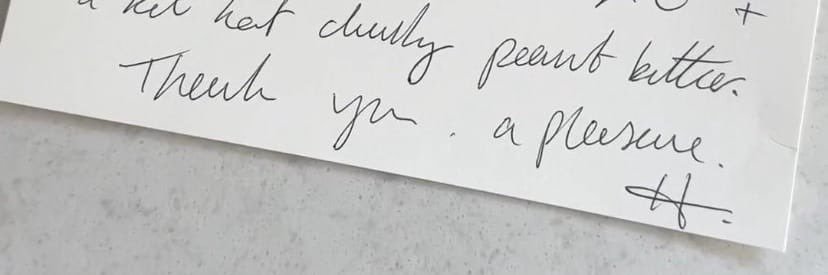 +
a kit kat chunky peanut butter.
Thank you. a pleasure.
H.